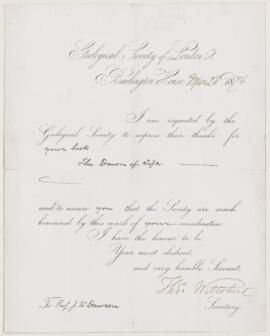 Geological Society of London.
Burlington House, 1876
I am requested by the
Geological Society to express their thanks for
your book
The Dawn of Life
and to assure you that the Society are much
honoured by this mark of your consideration.
I have the honour to be,
Your most obedient,
and very humble Servant,
Secretary.
To Prof. J. W. Dawson